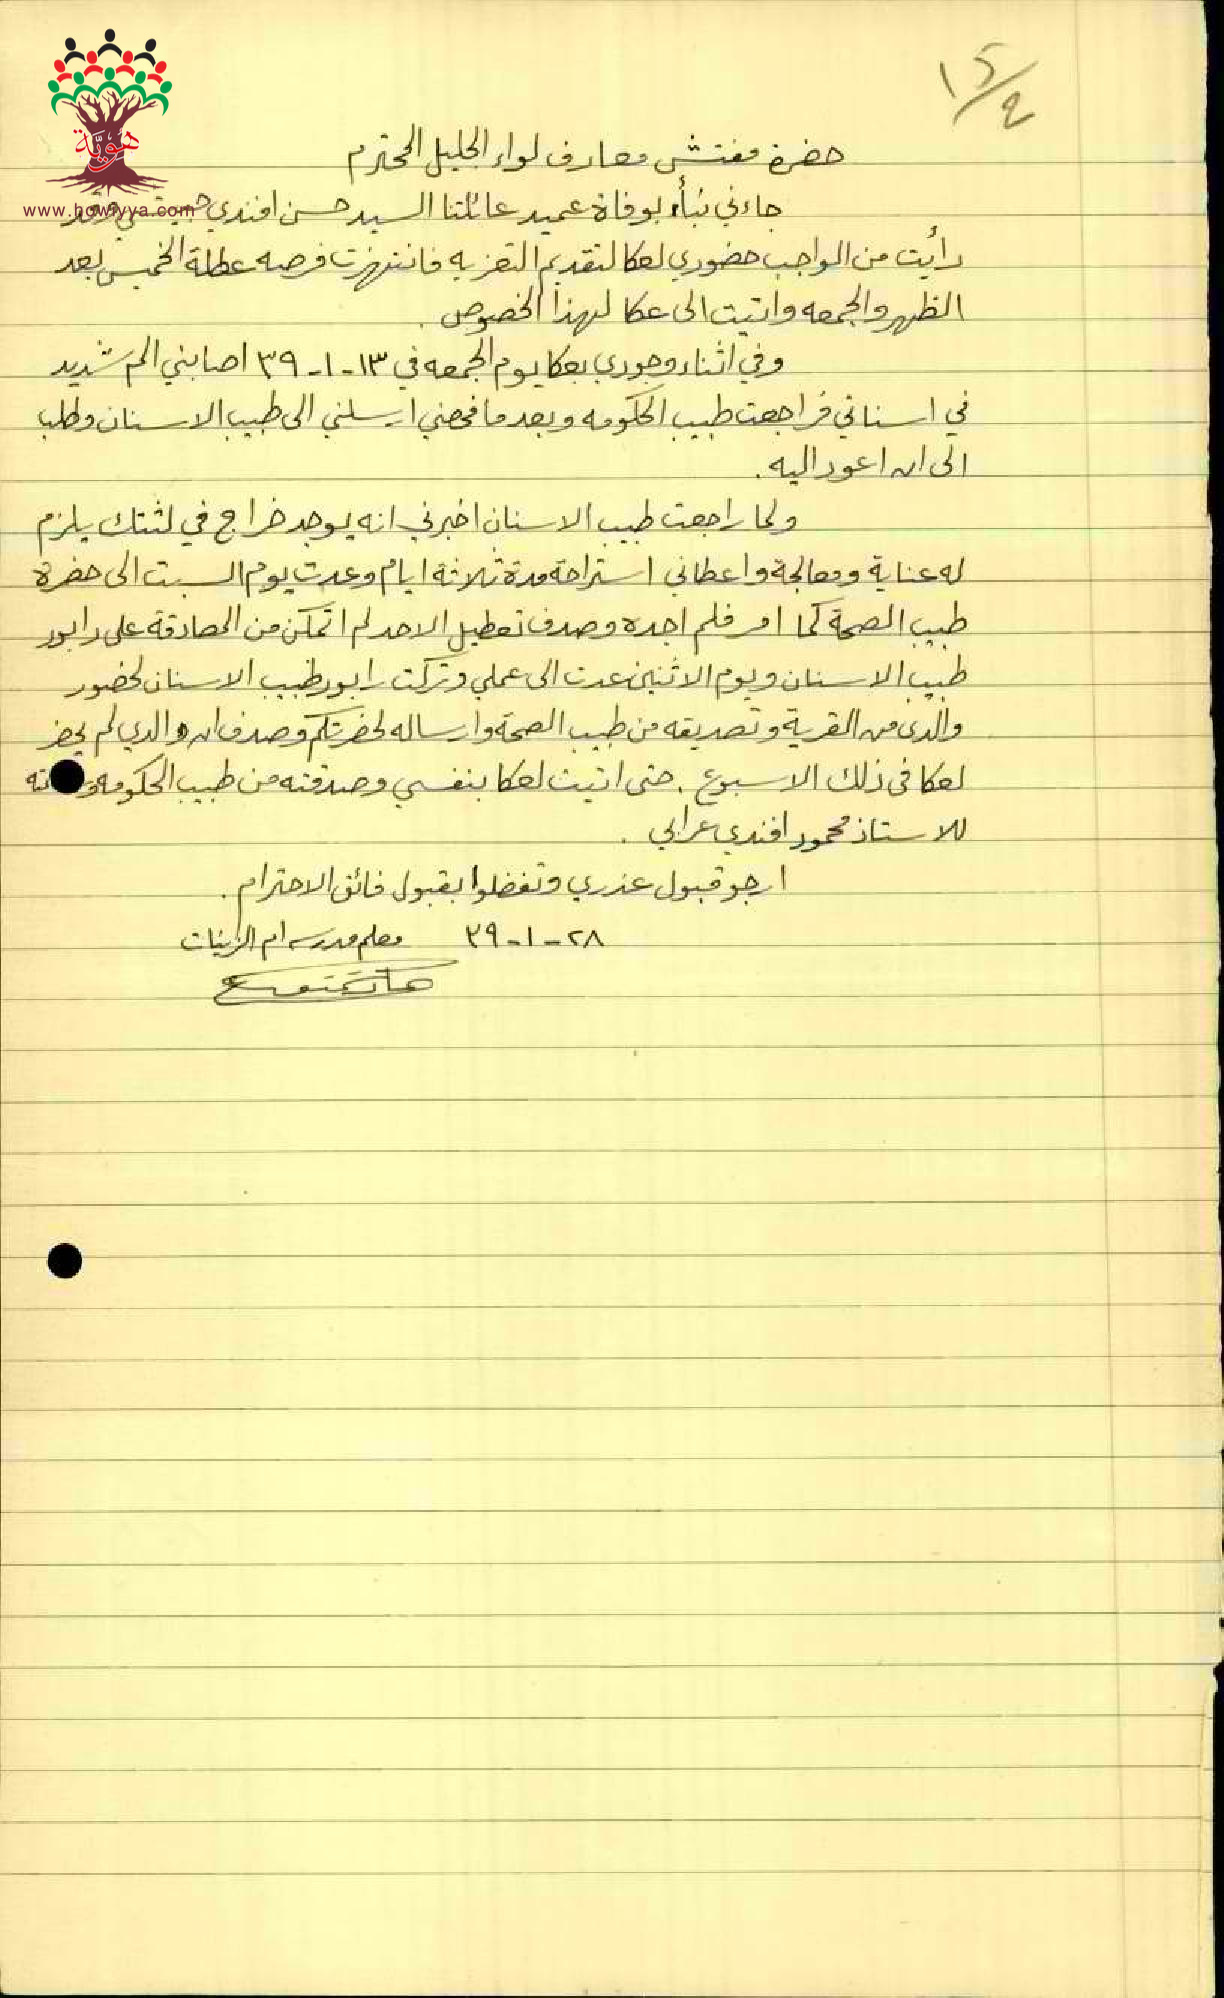 هوية
www.howiyya.com
١٥/٤
حضرة مفتش معارف لواء الجليل المحترم
جاءني نبأ بوفاة عميد عائلتنا السيد حسن افندي وقد
رأيت من الواجب حضوري لعكا لتقديم التعزيه فانتهزت فرصه عطلة الخميس بعد
الظهر والجمعه واتيت الى عكا لهذا الخصوص .
وفي اثناء وجودي بعكا يوم الجمعه في ١٣-١-٣٩ اصابني الم شديد
في اسناني فراجعت طبيب الحكومه وبعد ما فحصني ارسلني الى طبيب الاسنان وطلب
الى ان اعود اليه .
ولما راجعت طبيب الاسنان اخبرني انه يوجد خراج في لثتك يلزم
له عناية ومعالجة واعطاني استراحة مدة ثلاثة ايام وعدت يوم السبت الى حضرة
طبيب الصحة كما امر فلم اجده وصدف تعطيل الاحد لم اتمكن من المصادقة على رابور
طبيب الاسنان ويوم الاثنين عدت الى عملي وتركت رابور طبيب الاسنان لحضور
والدى من القرية وتصديقه من طبيب الصحة وارساله لحضرتكم وصدف ان والدي لم يحضر
لعكا فى ذلك الاسبوع . حتى اتيت لعكا بنفسي وصدقته من طبيب الحكومه
للاستاذ محمود افندي عرابي .
ارجو قبول عذري وتفضلوا بقبول فائق الاحترام .
٢٨-١-٣٩ معلم مدرسه ام الزينات